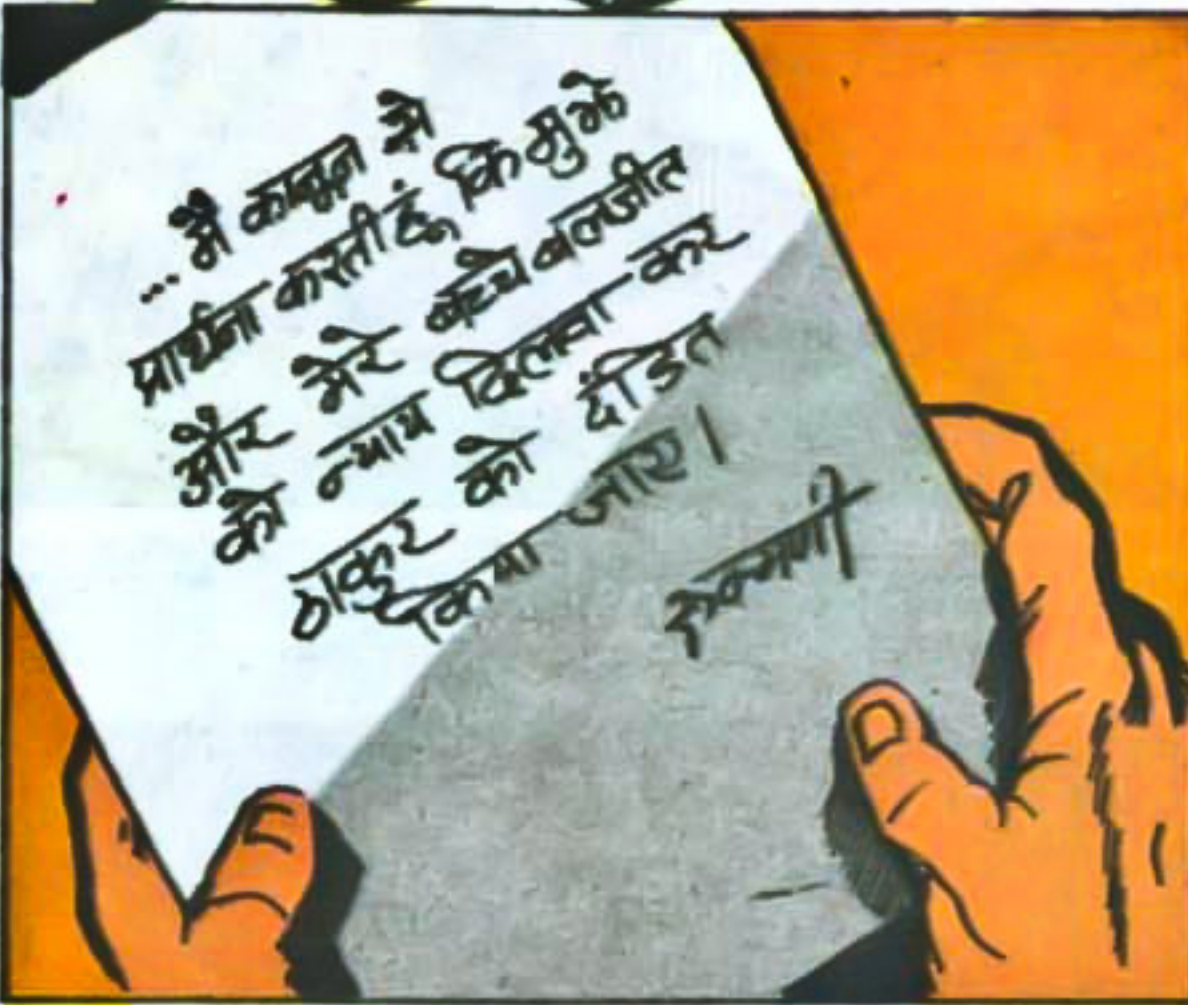 ... मैं कानून से
प्रार्थना करती हूं, कि मुझे
और मेरे बच्चे बलजीत
को न्याय दिलवा कर
ठाकुर को दंडित
किया जाए।
रूकमणी